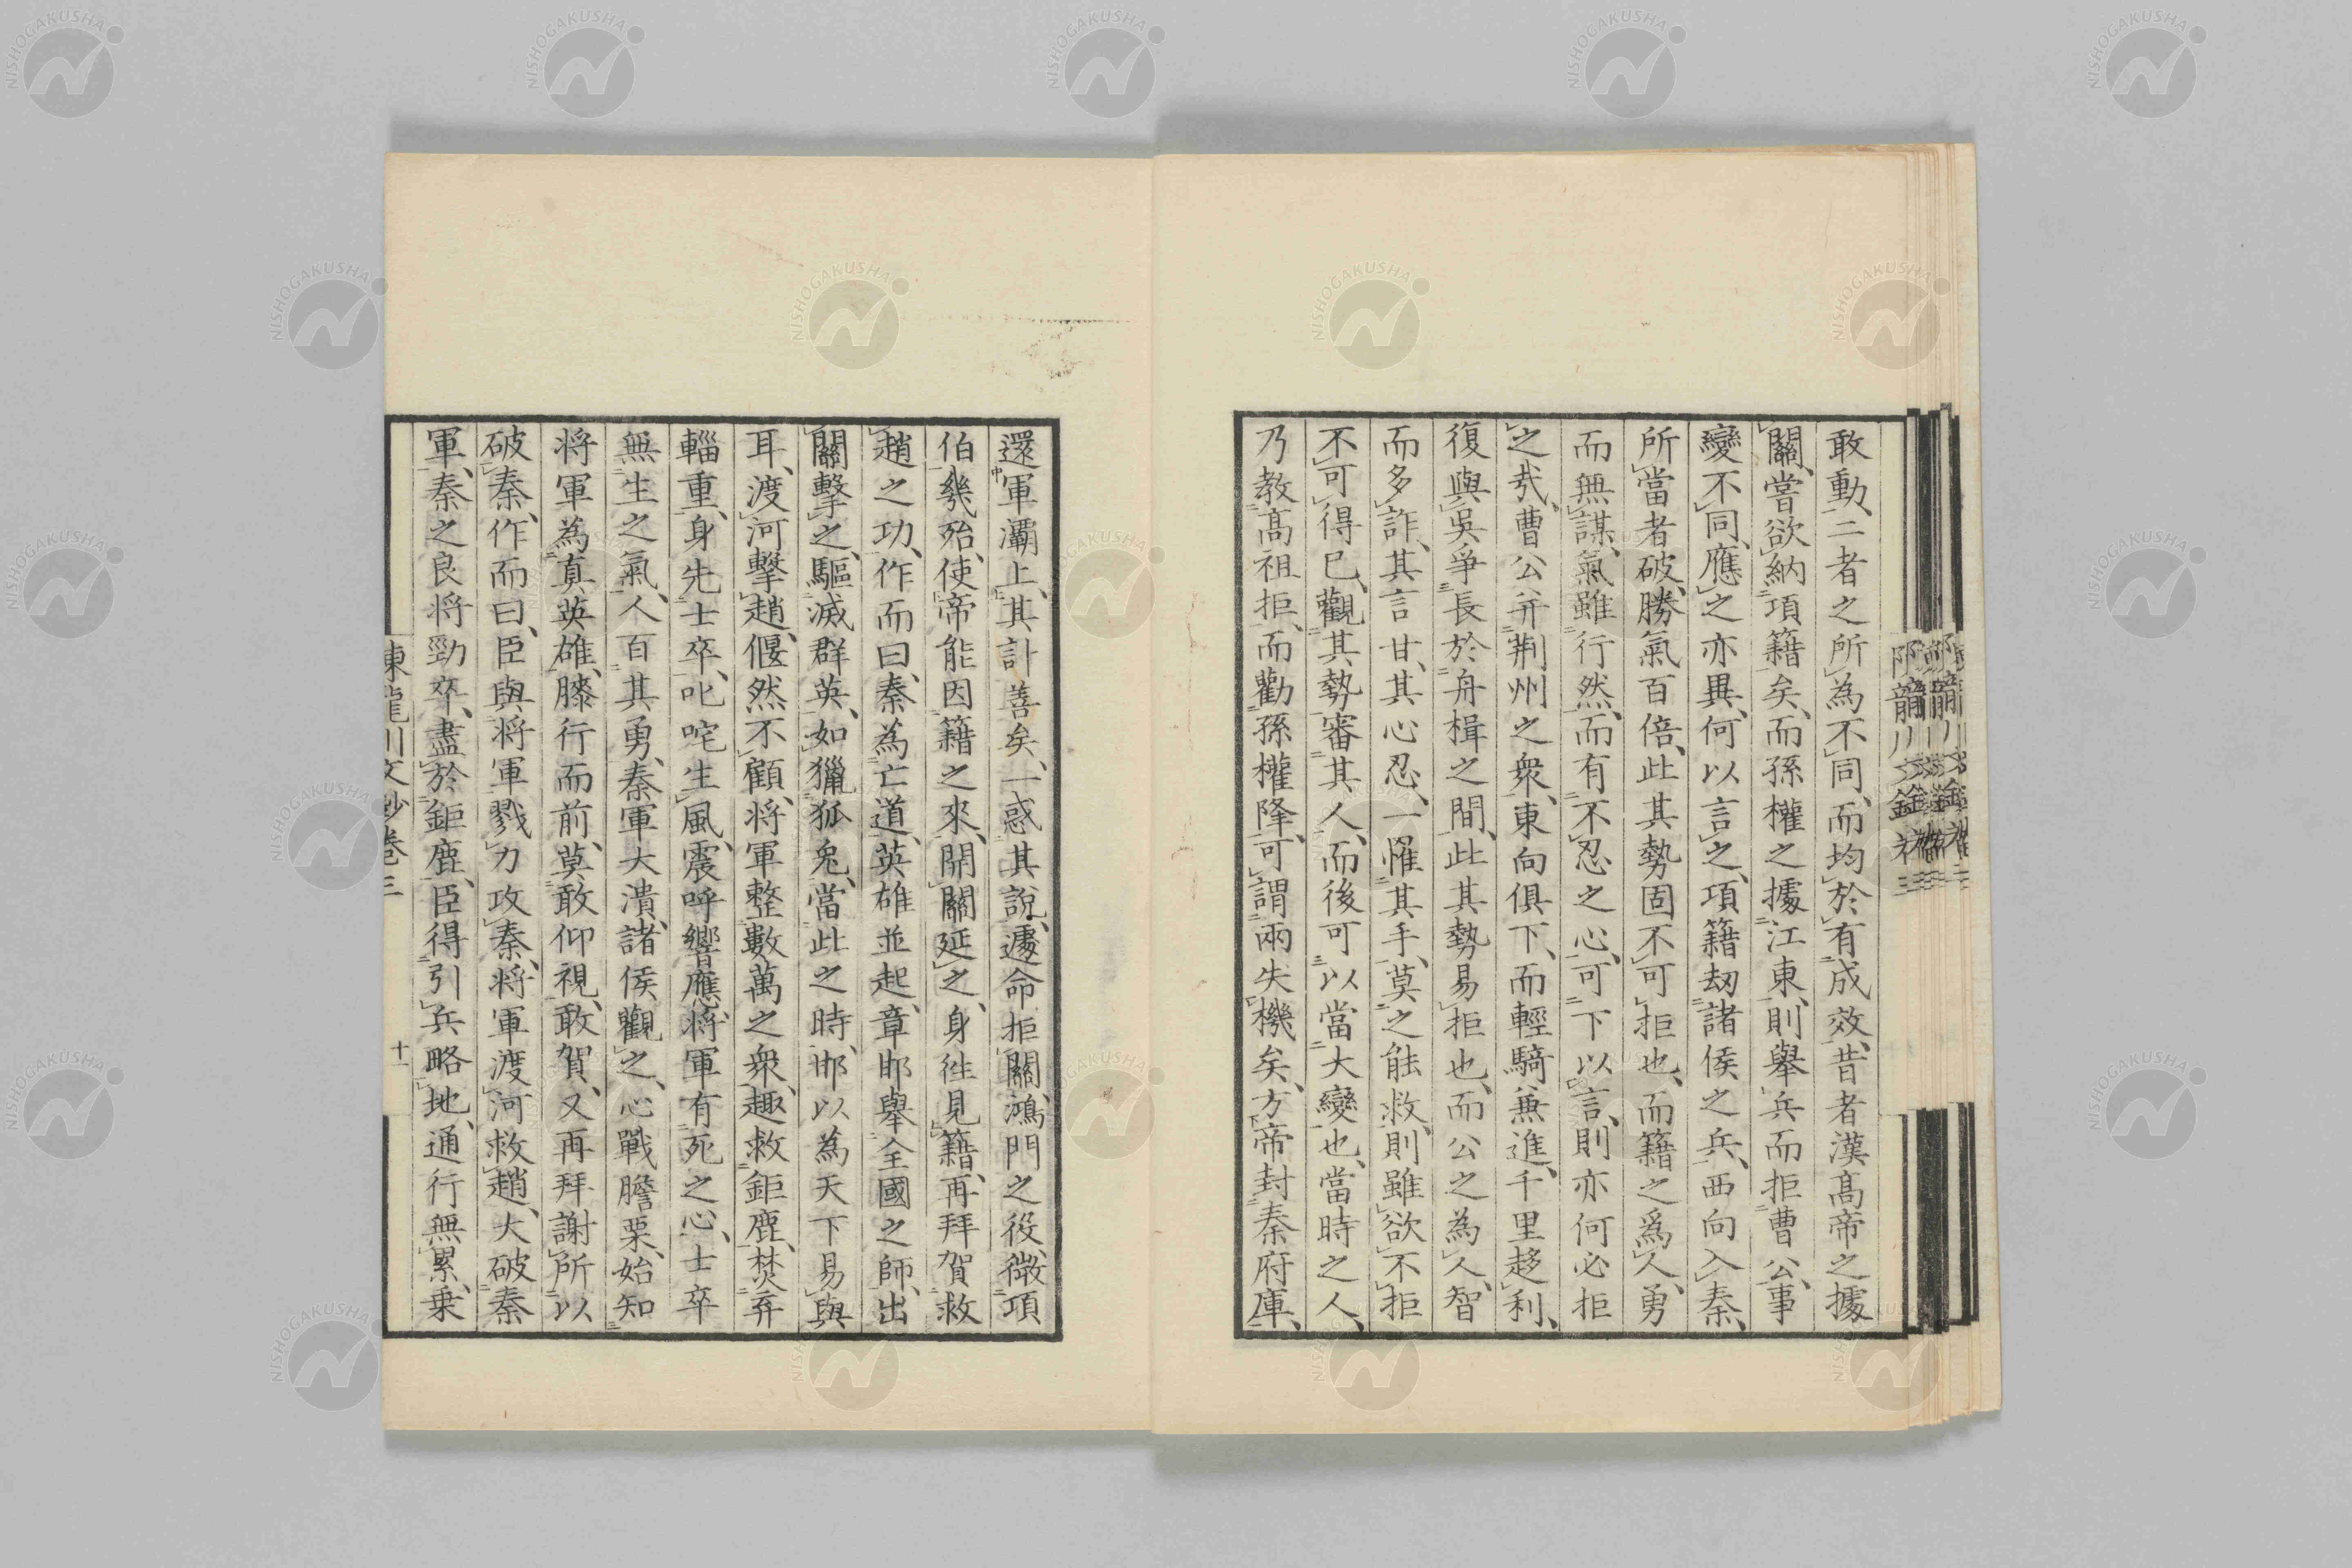 敢動、二者之所爲不同、而均於有成效、昔者漢髙帝之據
關、嘗欲納項籍矣、而孫權之據江東、則舉兵而拒曹公、事
變不同、應之亦異、何以言之、項籍劫諸侯之兵、西向入秦、
所當者破、勝氣百倍、此其勢固不可拒也、而籍之爲人、勇
而無謀、氣雖行然、而有不忍之心、可下以言、則亦何必拒
之㢤、曹公并荆州之衆、東向俱下、而輕騎兼進、千里趍利、
復與吳爭長於舟楫之間、此其勢易拒也、而公之為人、智
而多詐、其言甘、其心忍、一罹其手、莫之能救、則雖欲不拒
不可得已、觀其勢、審其人、而後可以當大變也、當時之人、
乃教髙祖拒、而勸孫權降、可謂兩失機矣、方帝封秦府庫、
還軍灞上、其計善矣、一惑其說、遽命拒關、鴻門之役、微項
伯幾殆、使帝能因籍之來、開關延之、身徃見籍、再拜賀救
趙之功、作而曰、秦為亡道、英雄並起、章邯舉全國之師、出
關擊之、驅滅群英、如獵狐兔、當此之時、邯以為天下易與
耳、渡河擊趙、偃然不顧、將軍整數萬之衆、趣救鉅鹿、焚弃
輜重、身先士卒、叱咤生風、震呼響應、將軍有死之心、士卒
無生之氣、人百其勇、秦軍大潰、諸侯觀之、心戰膽栗、始知
將軍為真英雄、膝行而前、莫敢仰視、敢賀、又再拜謝所以
破秦、作而曰、臣與將軍戮力攻秦、將軍渡河救趙、大破秦
軍、秦之良將勁卒、盡於鉅鹿、臣得引兵略地、通行無累、乗
陳龍川文鈔卷三
十一
NISHOGAKUSHA